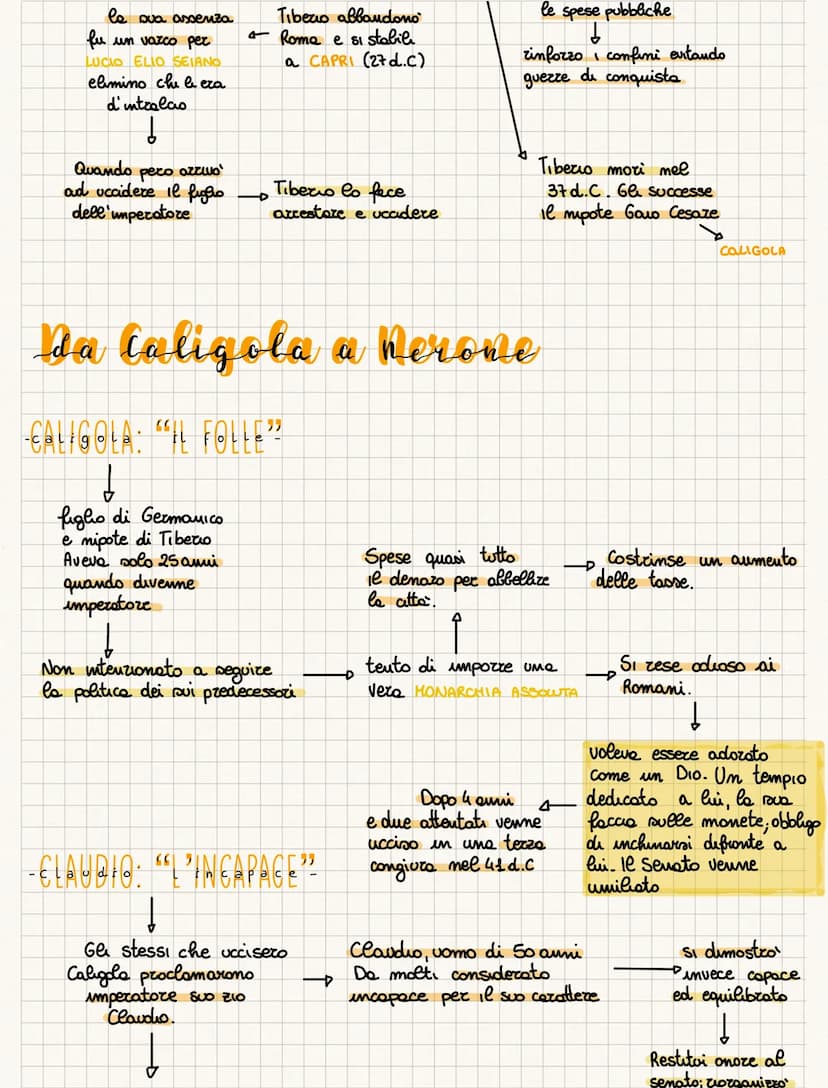 la sua assenza
fu un varco per
LUCIO ELIO SEIANO
eliminò chi li era
d'intralcio
Tiberio abbandonò
Roma e si stabilì
a CAPRI (27 d.C)
le spese pubbliche
rinforzo i confini evitando
guerre di conquista
Quando però arrivò
ad uccidere il figlio
dell'imperatore
Tiberio lo fece
arrestare e uccidere
Tiberio morì nel
37 d.C. Gli successe
il nipote Gaio Cesare
CALIGOLA
Da Caligola a Nerone
CALIGOLA: "IL FOLLE"
figlio di Germanico
e nipote di Tiberio
Aveva solo 25 anni
quando divenne
imperatore
Non intenzionato a seguire
la politica dei suoi predecessori
Spese quasi tutto
il denaro per abbellire
la città.
Costrinse un aumento
delle tasse.
tentò di imporre una
vera MONARCHIA ASSOLUTA
Si rese odioso ai
Romani.
voleva essere adorato
come un Dio. Un tempio
dedicato a lui, la sua
faccia sulle monete, obbligo
di inchinarsi difronte a
lui. Il Senato venne
umiliato
Dopo 4 anni
e due attentati venne
ucciso in una terza
congiura nel 41 d.C
CLAUDIO: "L'INCAPACE"
Gli stessi che uccisero
Caligola proclamarono
imperatore suo zio
Claudio.
Claudio, uomo di 50 anni
Da molti considerato
incapace per il suo carattere
si dimostrò
invece capace
ed equilibrato
Restituì onore al
senato; riorganizzò